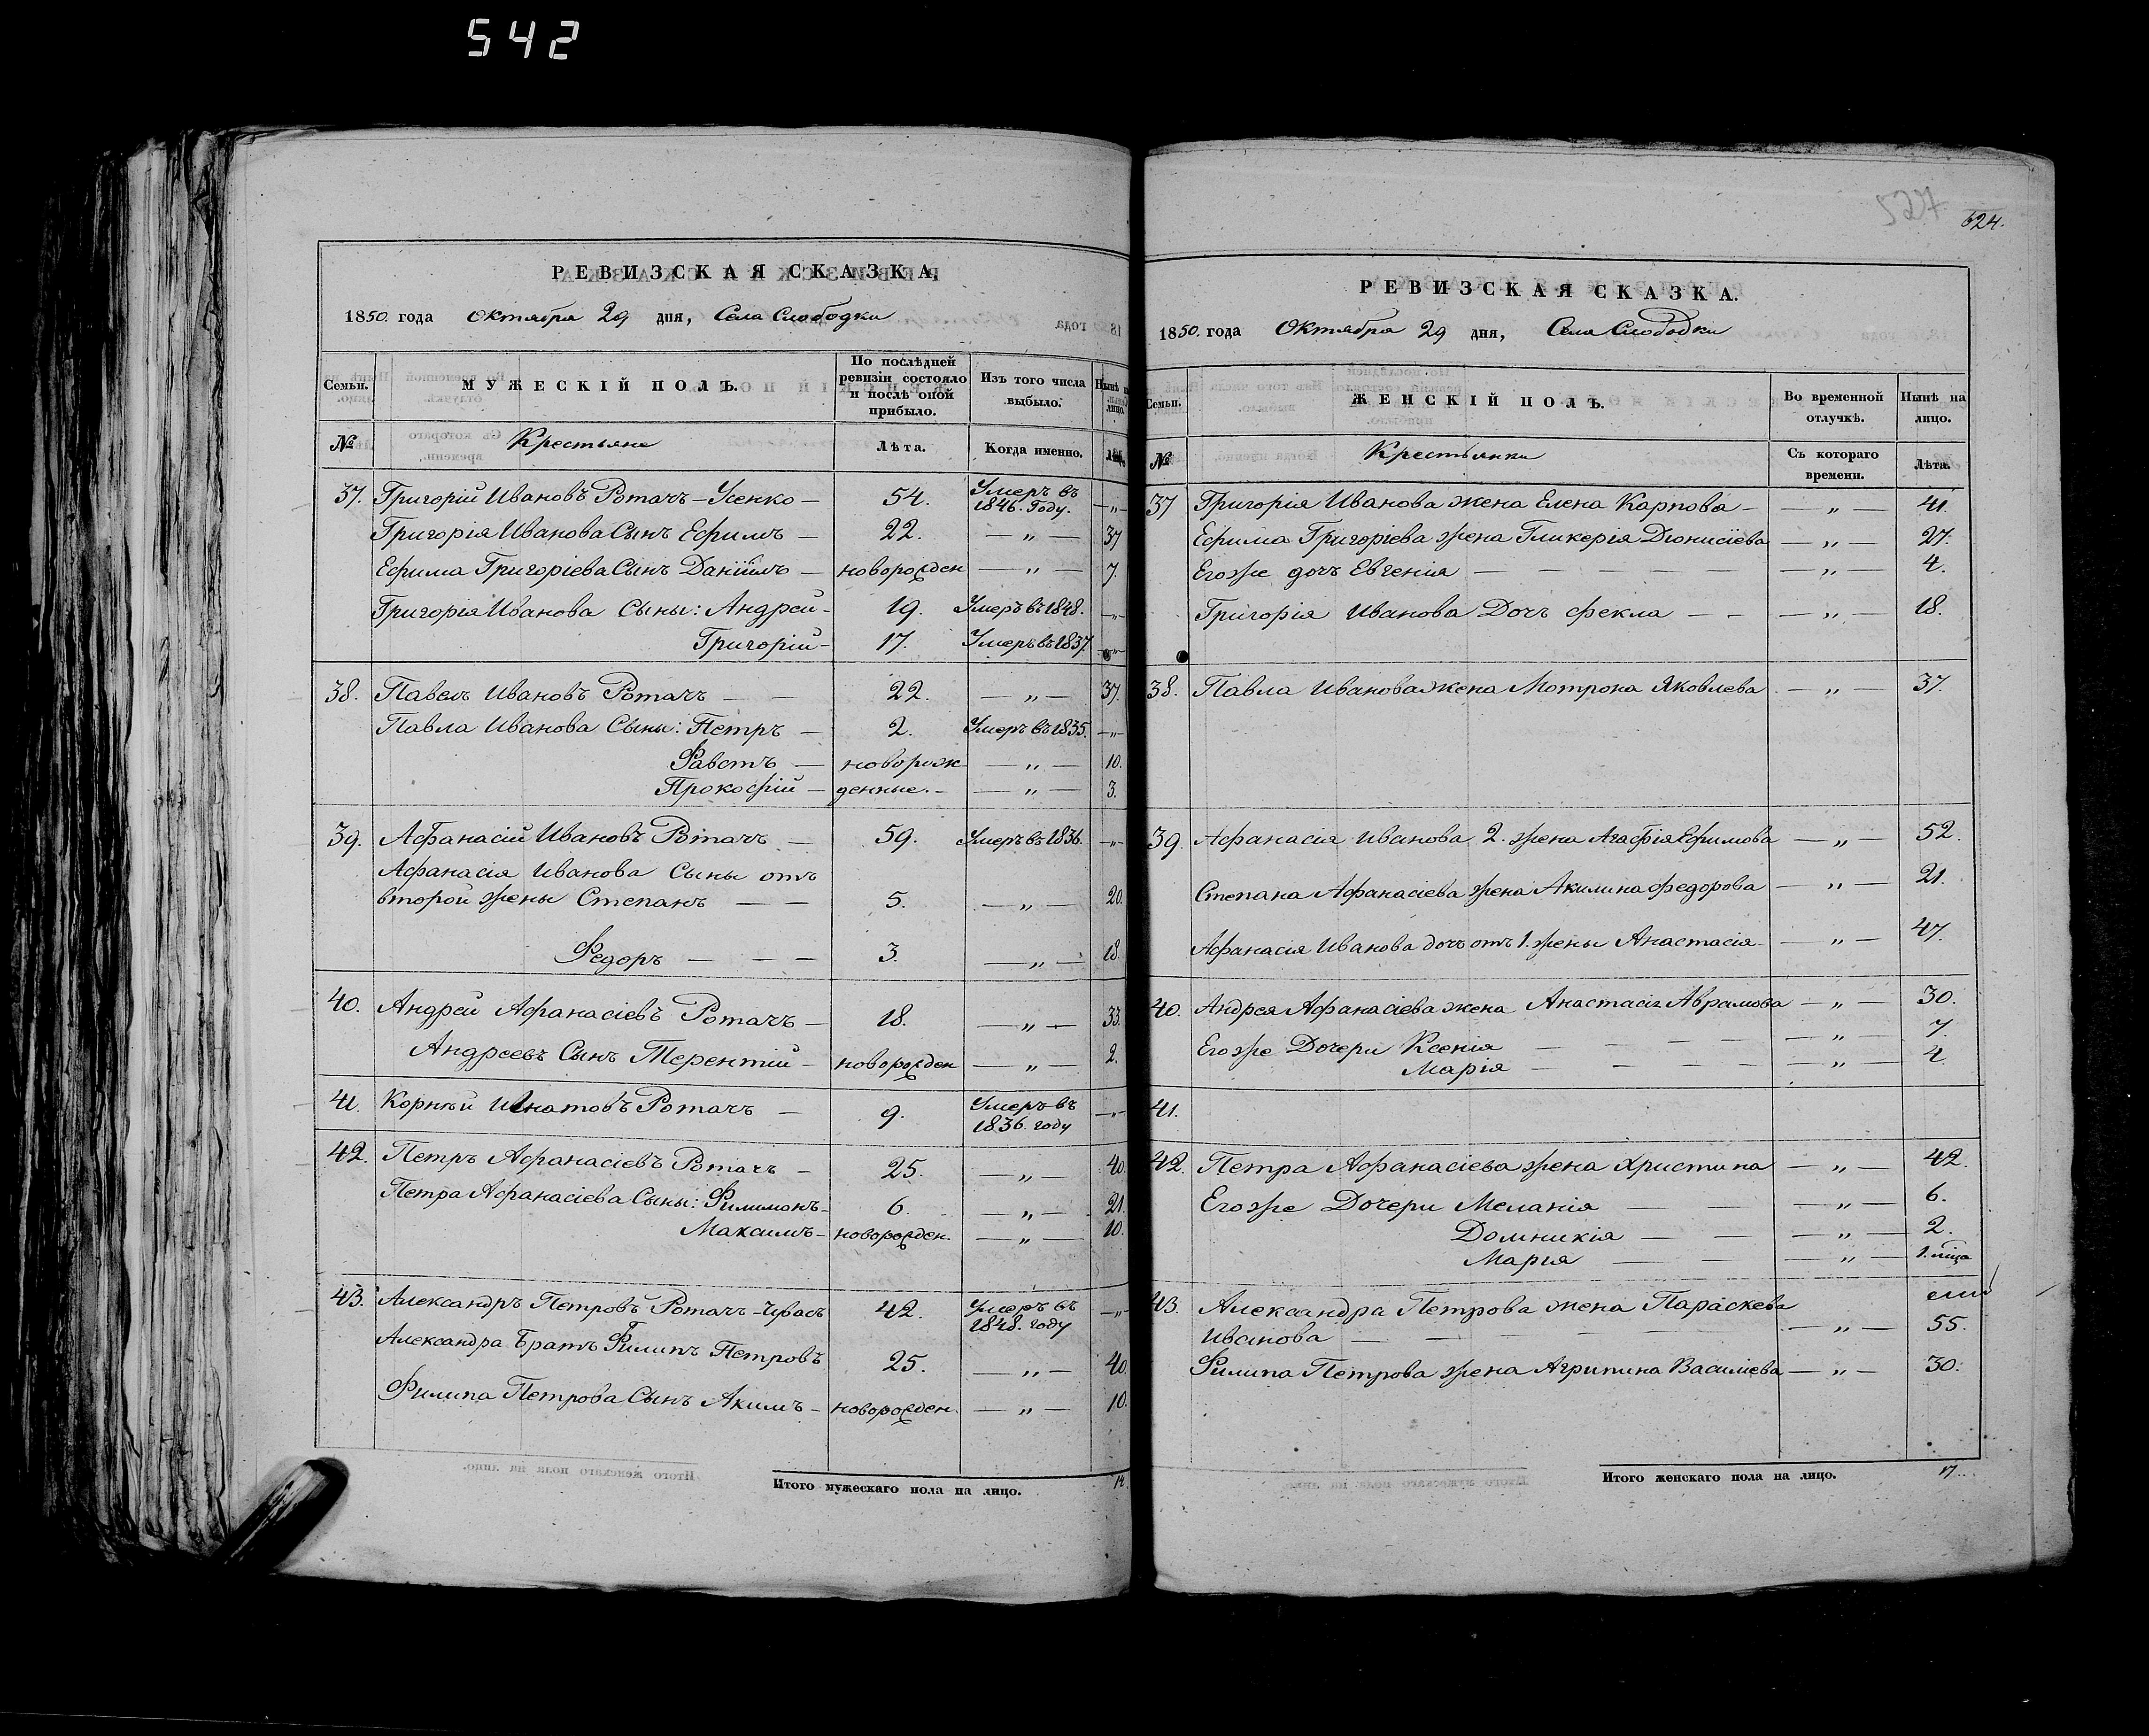 542
РЕВИЗСКАЯ СКАЗКА.
1850. года Октября 29 дня, Села Слободки
Семьи. МУЖЕСКІЙ ПОЛЪ. По послѣдней ревизіи состояло и послѣ оной прибыло. Изъ того числа выбыло. Нынѣ на лицо.
№ Крестьяне Лѣта. Когда именно. Лѣта.
37. Григорій Ивановъ Ротачъ-Усенко — 54. Умеръ въ 1846. Году. — „ —
Григорія Иванова Сынъ Ефимъ — 22. — „ — 37
Ефима Григоріева Сынъ Даніилъ — новорожден — „ — 7.
Григорія Иванова Сыны: Андрей - 19. Умеръ въ 1848. — „ —
Григорій - 17. Умеръ въ 1837. — „ —
38. Павелъ Ивановъ Ротачъ — — 22. — „ — 37.
Павла Иванова Сыны: Петръ — 2. Умеръ въ 1835. — „ —
Фавстъ — новорож — „ — 10.
Прокофій — денные. — — „ — 3.
39. Афанасій Ивановъ Ротачъ — 59. Умеръ въ 1836. — „ —
Афанасія Иванова Сыны отъ
второй жены Степанъ — — 5. — „ — 20.
Федоръ — — — 3. — „ — 18
40. Андрей Афанасіевъ Ротачъ — 18. — „ — 33.
Андреевъ Сынъ Терентій — новорожден — „ — 2.
41. Корнѣй Игнатовъ Ротачъ — 9. Умеръ въ 1836. году — „ —
42. Петръ Афанасіевъ Ротачъ — 25. — „ — 40.
Петра Афанасіева Сыны: Филимонъ - 6. — „ — 21.
Максимъ - новорожден. — „ — 10.
43. Александръ Петровъ Ротачъ 42. Умеръ въ 1848. году — „ —
Александра Братъ Филипъ Петровъ 25. — „ — 40.
Филипа Петрова Сынъ Акимъ - новорожден. — „ — 10.
Итого мужескаго пола на лицо. 14.
527
624.
РЕВИЗСКАЯ СКАЗКА.
1850. года Октября 29 дня, Села Слободки
Семьи. ЖЕНСКІЙ ПОЛЪ. Во временной отлучкѣ. Нынѣ на лицо.
№ Крестьянки Съ котораго времени. Лѣта.
37 Григорія Иванова жена Елена Карпова — — „ — 41.
Ефима Григоріева жена Гликерія Діонисіева — „ — 27.
Егоже дочь Евгенія — — — — — — „ — 4.
Григорія Иванова Дочь Фекла — — — „ — 18.
38. Павла Иванова жена Мотрона Яковлева — „ — 37.
39. Афанасія Иванова 2. жена Агафія Ефимова — „ — 52.
Степана Афанасіева жена Акилина Федорова — „ — 21.
Афанасія Иванова дочь отъ 1. жены Анастасія — „ — 47.
40. Андрея Афанасіева жена Анастасія Аврамова — „ — 30.
Егоже Дочери Ксенія — — — — — „ — 7.
Марія — — — — — „ — 4
41.
42. Петра Афанасіева жена Христина — „ — 42.
Егоже Дочери Меланія — — — „ — 6.
Домникія — — — „ — 2.
Марія — — — „ — 1.
43. Александра Петрова жена Параскева
Иванова — — — — — — „ — 55.
Филипа Петрова жена Агрипина Василіева — „ — 30.
Итого женскаго пола на лицо. 17.